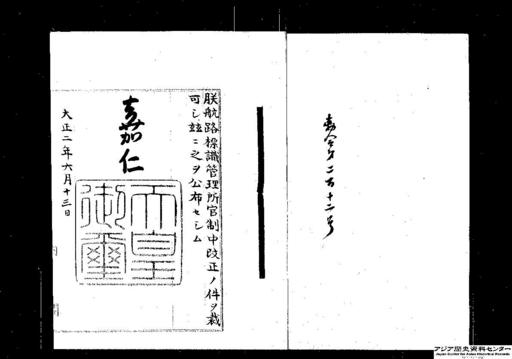 勅令第二百十二号
朕航路標識管理所官制中改正ノ件ヲ裁
可シ玆ニ之ヲ公布セシム
嘉仁
天皇
御璽
大正二年六月十三日
アジア歴史資料センター
Japan Center for Asian Historical Records